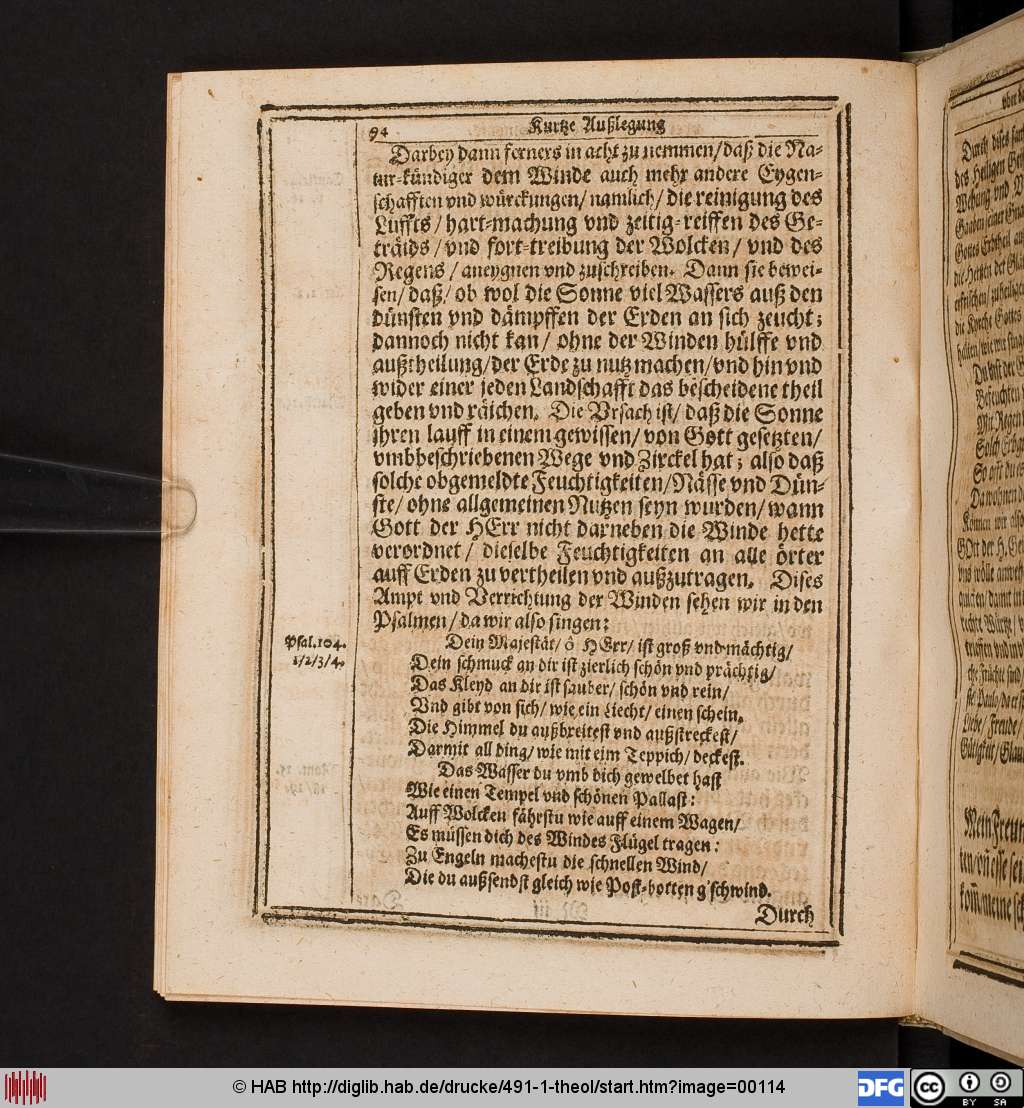 94
Kurtze Außlegung
Darbey dann ferners in acht zu nemmen/ daß die Na-
tur-kündiger dem Winde auch mehr andere Eygen-
schafften vnd würckungen/ namlich/ die reinigung des
Luffts/ hart-machung vnd zeitig-reiffen des Ge-
träids/ vnd fort-treibung der Wolcken/ vnd des
Regens/ aneygnen vnd zuschreiben. Dann sie bewei-
sen/ daß/ ob wol die Sonne viel Wassers auß den
dünsten vnd dämpffen der Erden an sich zeucht;
dannoch nicht kan/ ohne der Winden hülffe vnd
außtheilung/ der Erde zu nutz machen/ vnd hin vnd
wider einer jeden Landschafft das bescheidene theil
geben vnd räichen. Die Vrsach ist/ daß die Sonne
jhren lauff in einem gewissen/ von Gott gesetzten/
vmbbeschriebenen Wege vnd Zirckel hat; also daß
solche obgemeldte Feuchtigkeiten/ Nässe vnd Dün-
ste/ ohne allgemeinen Nutzen seyn wurden/ wann
Gott der HErr nicht darneben die Winde hette
verordnet/ dieselbe Feuchtigkeiten an alle örter
auff Erden zu vertheilen vnd außzutragen. Dises
Ampt vnd Verrichtung der Winden sehen wir in den
Psalmen/ da wir also singen:
Psal. 104.
1/2/3/4.
Dein Majestät/ ô HErr/ ist groß vnd mächtig/
Dein schmuck an dir ist zierlich schön vnd prächtig/
Das Kleyd an dir ist sauber/ schön vnd rein/
Vnd gibt von sich/ wie ein Liecht/ einen schein.
Die Himmel du außbreitest vnd außstreckest/
Darmit all ding/ wie mit eim Teppich/ deckest.
Das Wasser du vmb dich gewelbet hast
Wie einen Tempel vnd schönen Pallast:
Auff Wolcken fährstu wie auff einem Wagen/
Es müssen dich des Windes Flügel tragen:
Zu Engeln machestu die schnellen Wind/
Die du außsendst gleich wie Post-botten g'schwind.
Durch
Durch dises
des Heiligen
Wehung vnd
Gottes Erdtheil
die Hertzen der
die Kyrche Gottes
Mit Regen
Da wohnen
Können wir also
GOtt der H.
vns wölle
Liebe/ Freude/
Gütigkeit/
Mein Freun
kom̃ meine
© HAB http://diglib.hab.de/drucke/491-1-theol/start.htm?image=00114
DFG
cc
BY SA